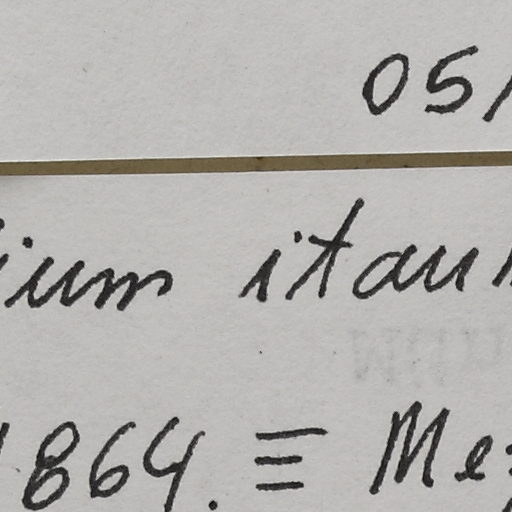 05/
ium itau
1864. ≡ Me